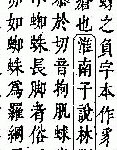 之負字本作
也淮南子說林
恭於切音拘肌蛷
蜘蛛長脚者俗
亦如蜘蛛爲羅網